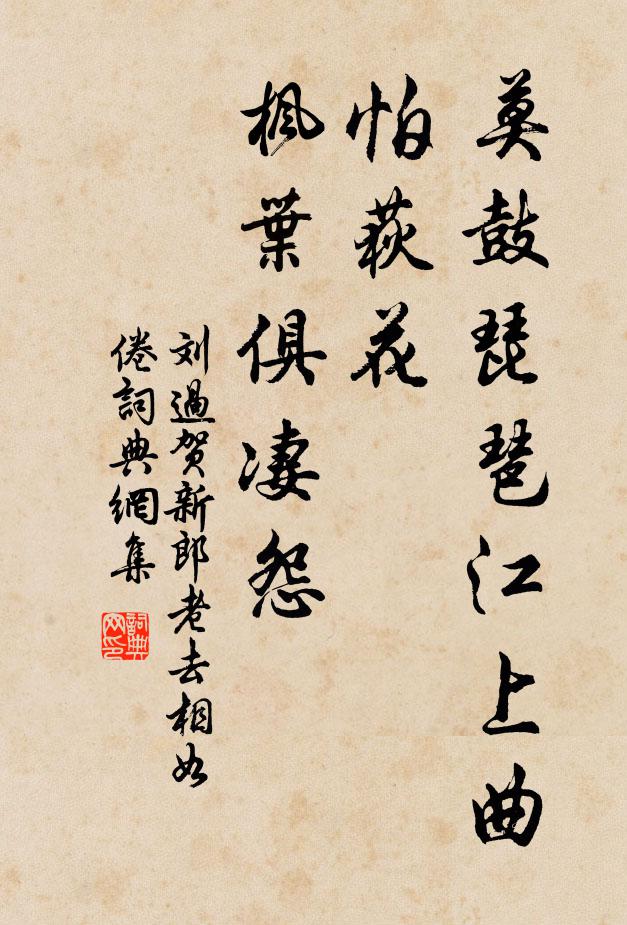 莫鼓琵琶江上曲
怕荻花
楓葉俱凄怨
刘過贺新郎老去相如
倦詞典網集
詞典
网印